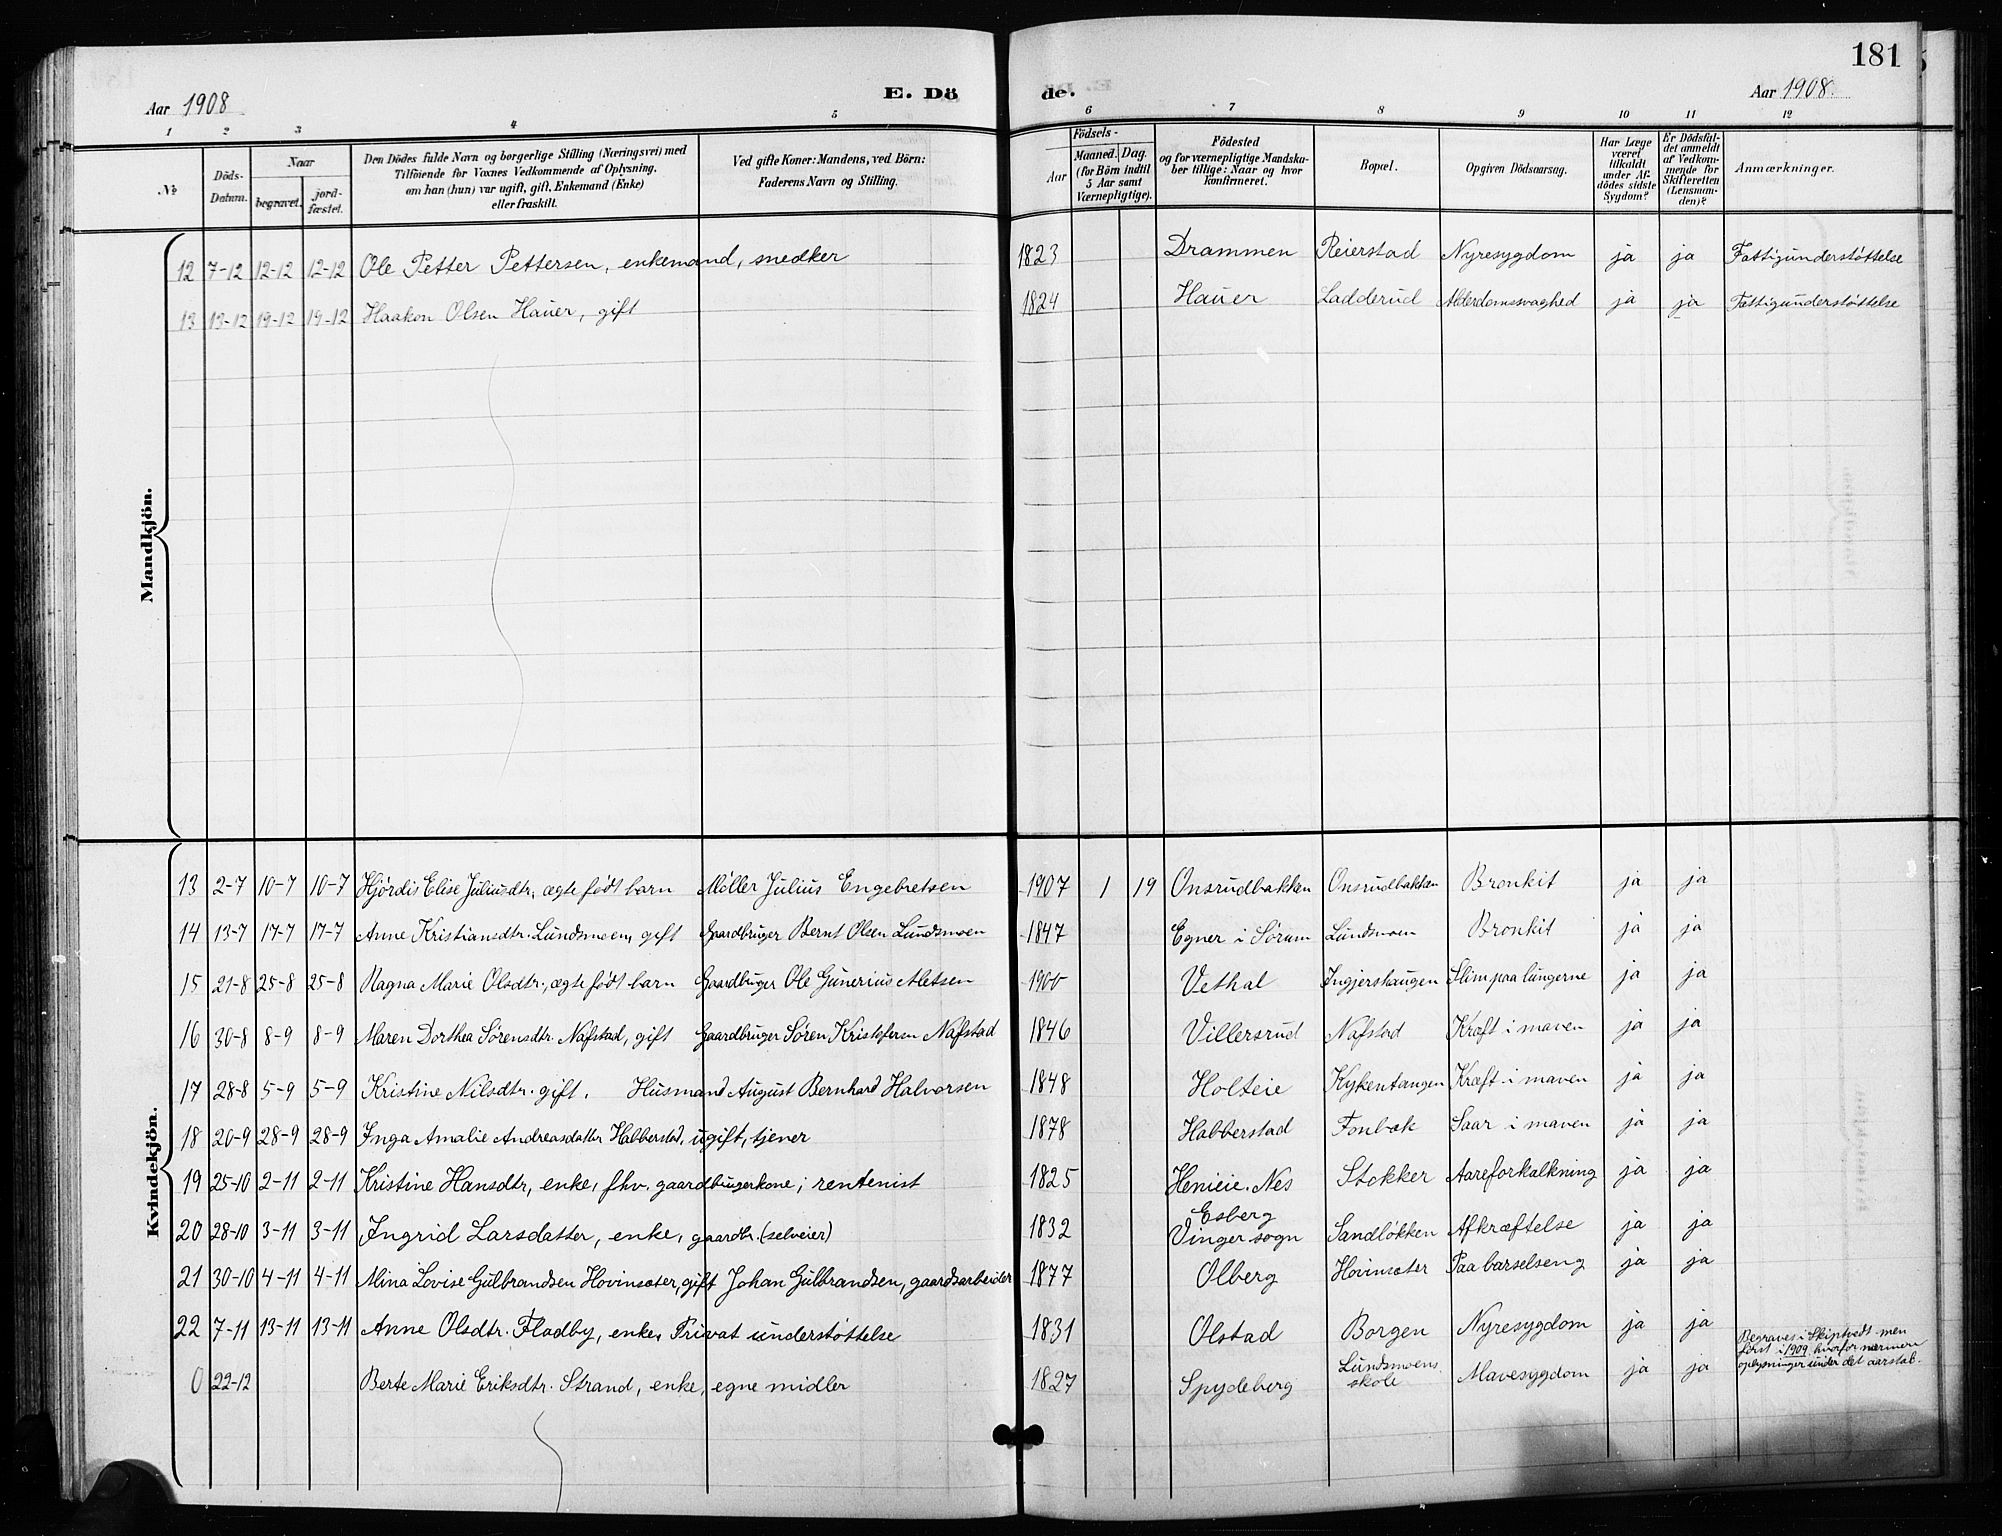 181
Aar 1908 E. Döde. Aar 1908.
1 2 3 4 5 6 7 8 9 10 11 12
№
Döds-Datum.
Naar
begravet.
jordfæstet.
Den Dödes fulde Navn og borgerlige Stilling (Næringsvei) med
Tilföiende for Voxnes Vedkommende af Oplysning,
om han (hun) var ugift, gift, Enkemand (Enke)
eller fraskilt.
Ved gifte Koner: Mandens, ved Börn:
Faderens Navn og Stilling.
Födsels-
Aar
Maaned. Dag.
(for Börn indtil
5 Aar samt
Værnepligtige).
Födested
og for værnepligtige Mandska-
ber tillige: Naar og hvor
konfirmeret.
Bopæl.
Opgiven Dödsaarsag.
Har Læge
været
tilkaldt
under Af-
dödes sidste
Sygdom?
Er Dödsfal-
det anmeldt
af Vedkom-
mende for
Skifteretten
(Lensman-
den)?
Anmærkninger.
Mandkjön.
12 7-12 12-12 12-12 Ole Petter Pettersen, enkemand, snedker 1823 Drammen Reierstad Nyresygdom ja ja Fattigunderstøttelse
13 13-12 19-12 19-12 Haakon Olsen Hauer, gift 1824 Hauer Ladderud Alderdomssvaghed ja ja Fattigunderstøttelse
Kvindekjön.
13 2-7 10-7 10-7 Hjørdis Elise Juliusdtr, ægte født barn Møller Julius Engebretsen 1907 1 19 Onsrudbakken Onsrudbakken Bronkit ja ja
14 13-7 17-7 17-7 Anne Kristiansdtr. Lundsmoen, gift Gaardbruger Bernt Olsen Lundsmoen 1847 Egner i Sørum Lundsmoen Bronkit ja ja
15 21-8 25-8 25-8 Magna Marie Olsdtr., ægte født barn Gaardbruger Ole Gunerius Aletsen 1900 Vethal Ingjershaugen Slim paa lungerne ja ja
16 30-8 8-9 8-9 Maren Dorthea Sørensdtr. Nafstad, gift Gaardbruger Søren Kristofersen Nafstad 1846 Villersrud Nafstad Kræft i maven ja ja
17 28-8 5-9 5-9 Kristine Nilsdtr. gift. Husmand August Bernhard Halvorsen 1848 Holteie Kykentangen Kræft i maven ja ja
18 20-9 28-9 28-9 Inga Amalie Andreasdatter Habberstad, ugift, tjener 1878 Habberstad Fonbæk Saar i maven ja ja
19 25-10 2-11 2-11 Kristine Hansdtr, enke, fhv. gaardbrugerkone; rentenist 1825 Henieie. Nes Stokker Aareforkalkning ja ja
20 28-10 3-11 3-11 Ingrid Larsdatter, enke, gaardbr. (selveier) 1832 Esberg
Vinger sogn Sandløkken Afkræftelse ja ja
21 30-10 4-11 4-11 Mina Lovise Gulbrandsen Hovinsæter, gift Johan Gulbrandsen, gaardsarbeider 1877 Olberg Hovinsæter Paa barselseng ja ja
22 7-11 13-11 13-11 Anne Olsdtr. Fladby, enke, Privat understøttelse 1831 Olstad Borgen Nyresygdom ja ja
0 22-12 Berte Marie Eriksdtr. Strand, enke, egne midler 1827 Spydeberg Lundsmoens
skole Mavesygdom ja ja Begraves i Skiptvedt men
først i 1909 hvorfor nærmere
oplysninger under det aarstal.